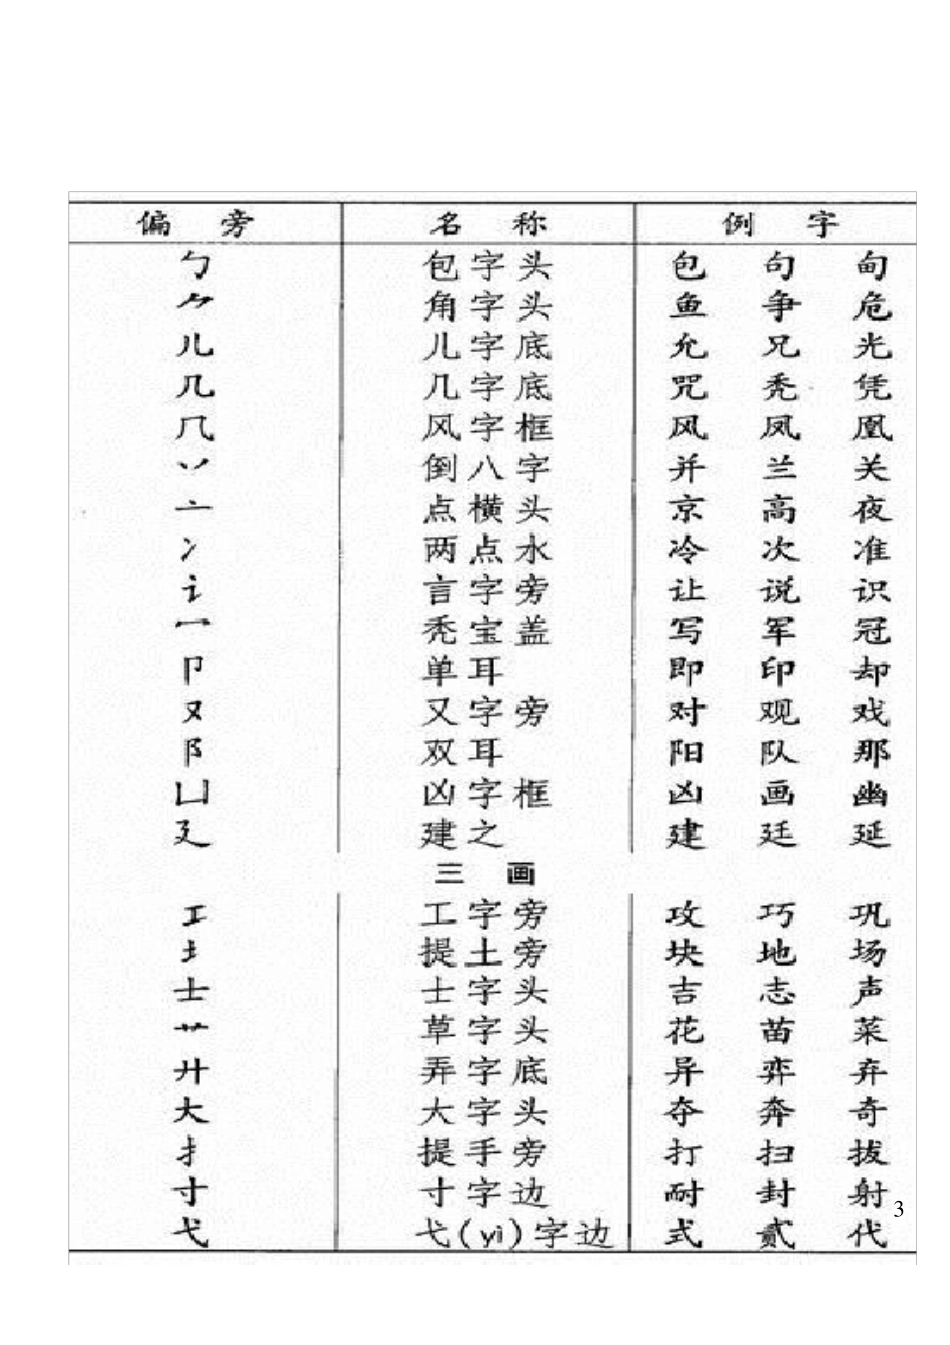 偏 旁 名 称 例 字
勹 包字头 包 句 甸
⺈ 角字头 鱼 争 危
儿 儿字底 允 兄 光
几 几字底 咒 秃 凭
⺇ 风字框 风 凤 凰
丷 倒八字 并 兰 关
亠 点横头 京 高 夜
冫 两点水 冷 次 准
讠 言字旁 让 说 识
冖 秃宝盖 写 军 冠
卩 单耳 即 印 却
又 又字旁 对 观 戏
阝 双耳 阳 队 那
凵 凶字框 凶 画 幽
廴 建之 建 廷 延
三 画
工 工字旁 攻 巧 巩
土 提土旁 块 地 场
士 士字头 吉 志 声
艹 草字头 花 苗 菜
廾 弄字底 异 弈 弃
大 大字头 夺 奔 奇
扌 提手旁 打 扫 拔
寸 寸字边 耐 封 射
3
弋 弋(yì)字边 式 贰 代